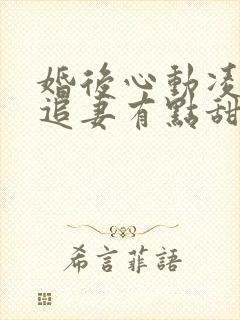 婚後心動凌
追妻有點甜
希言菲語